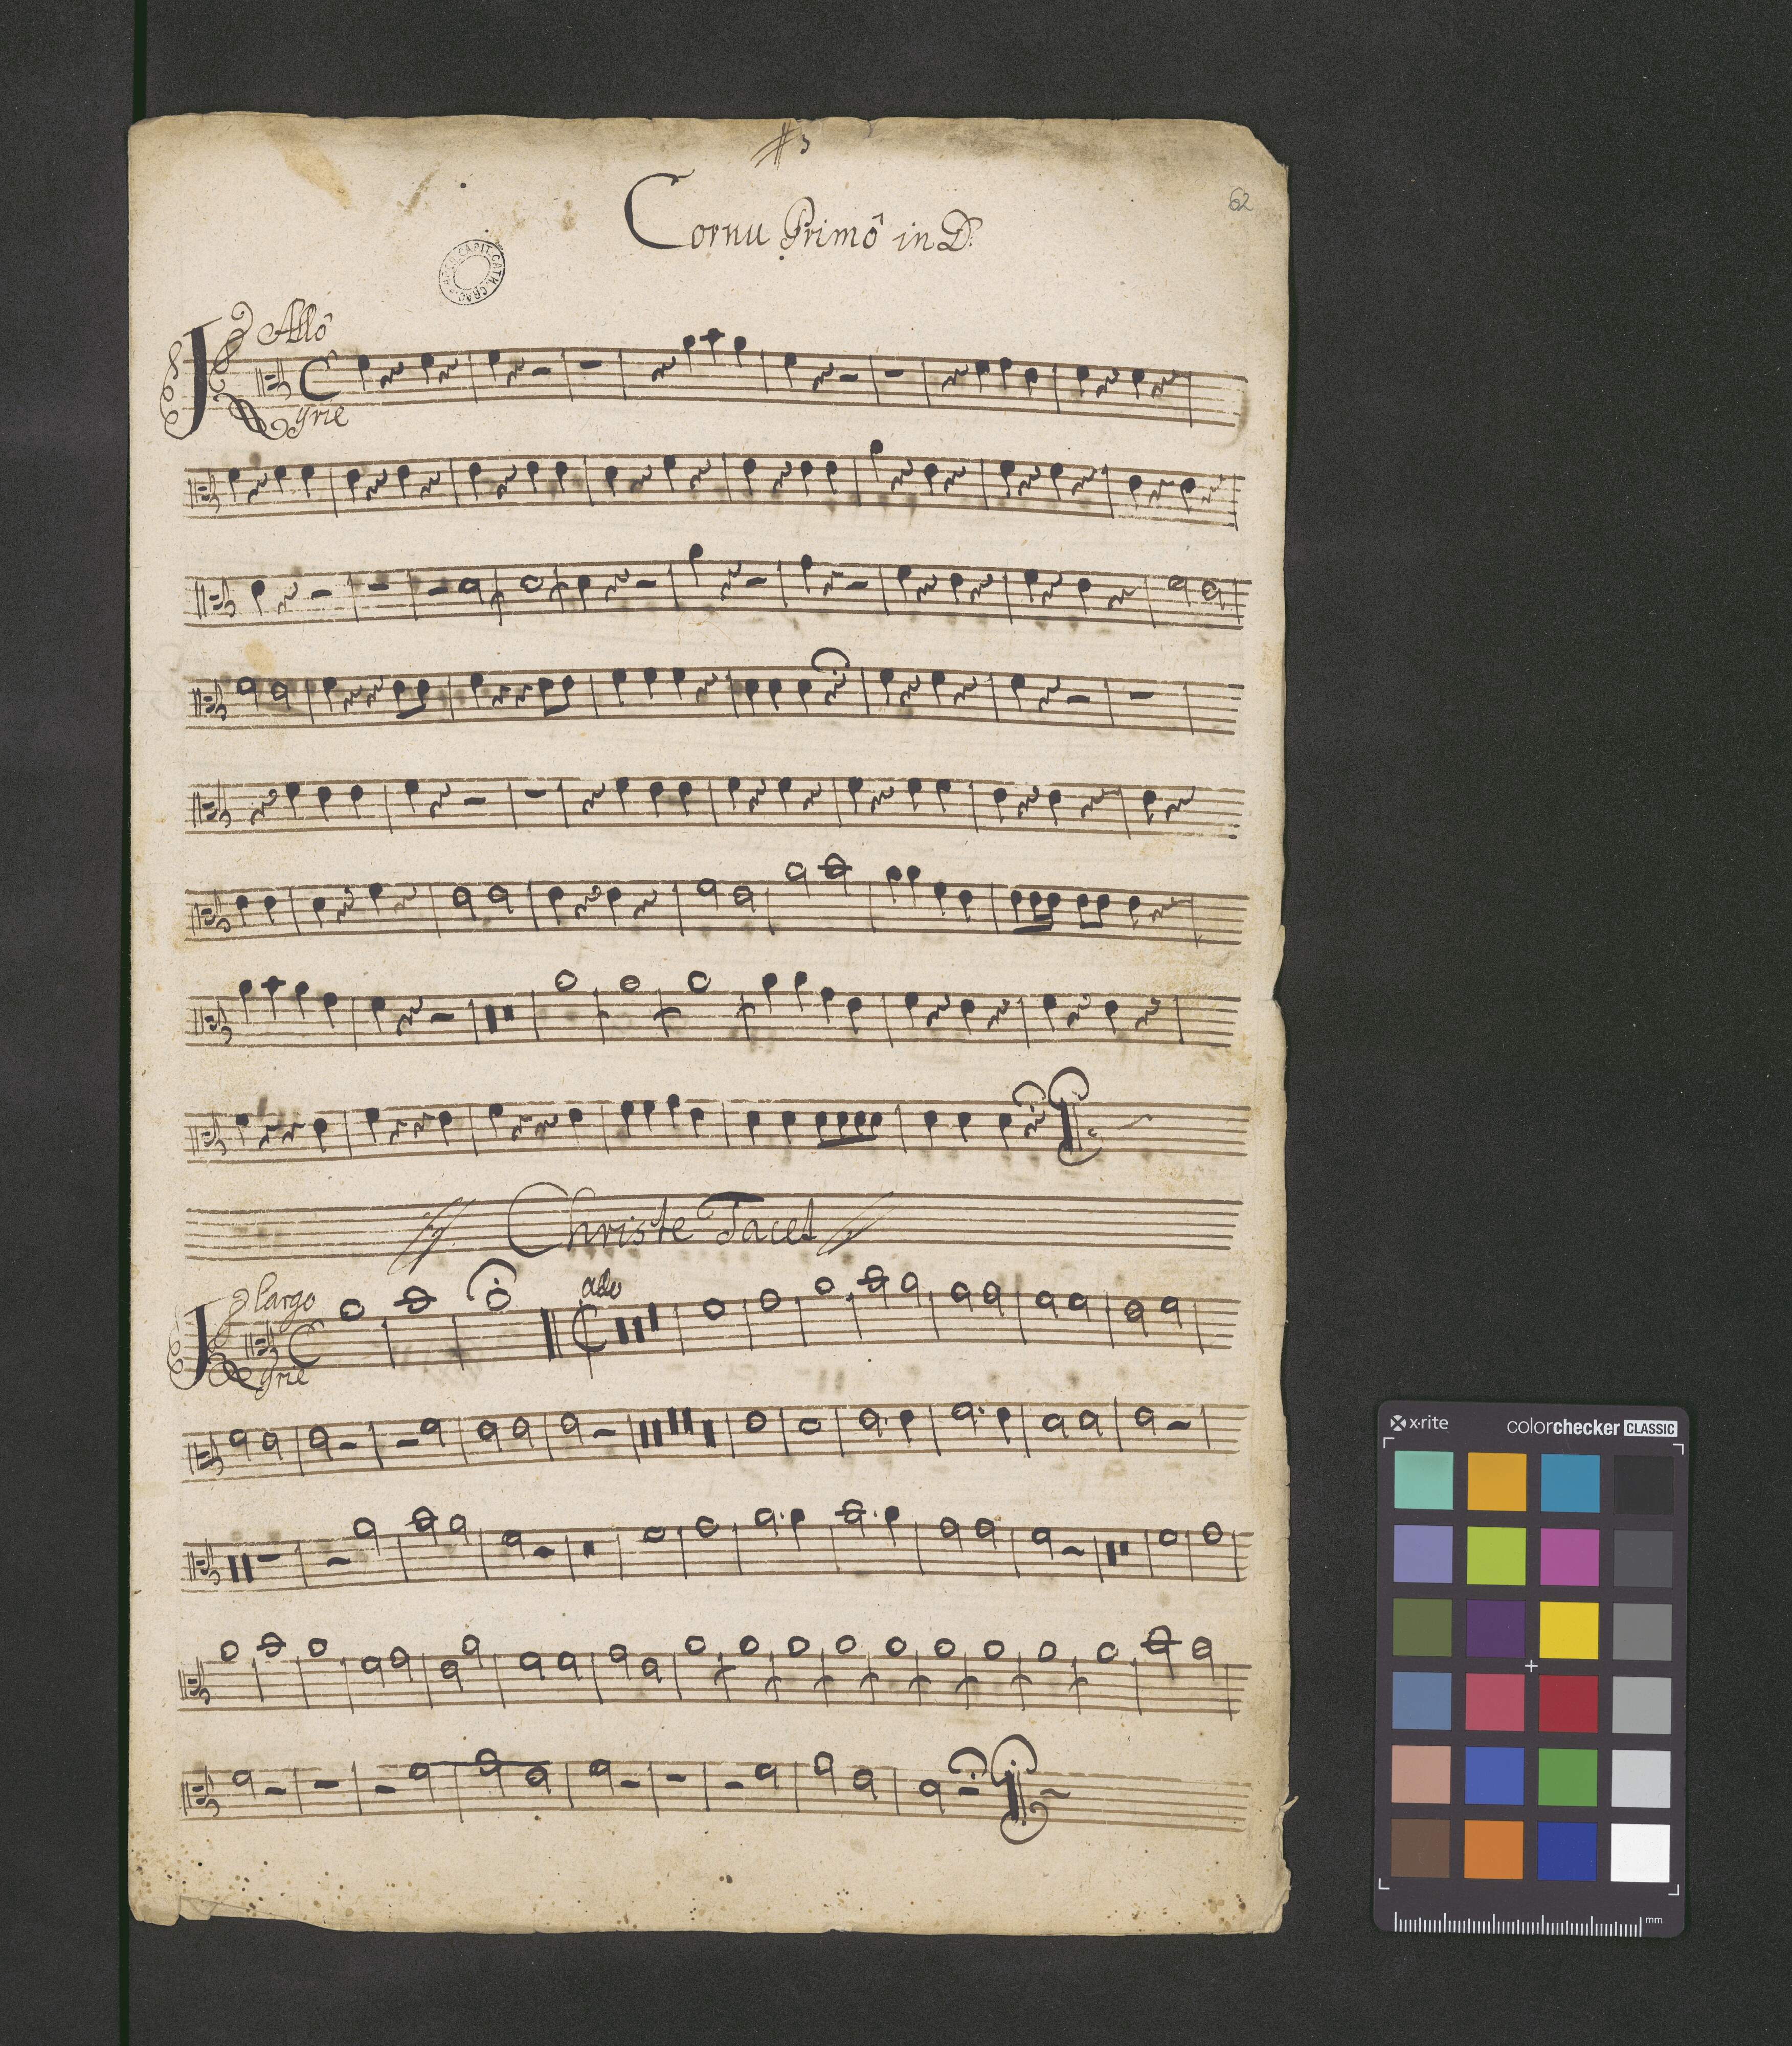 #3
62
Cornu Primô in D.
CAPIT. CATH. CRAC.
Allô
Kyrie
Christe Tacet
largo
allo
Kyrie
x·rite
colorchecker CLASSIC
mm